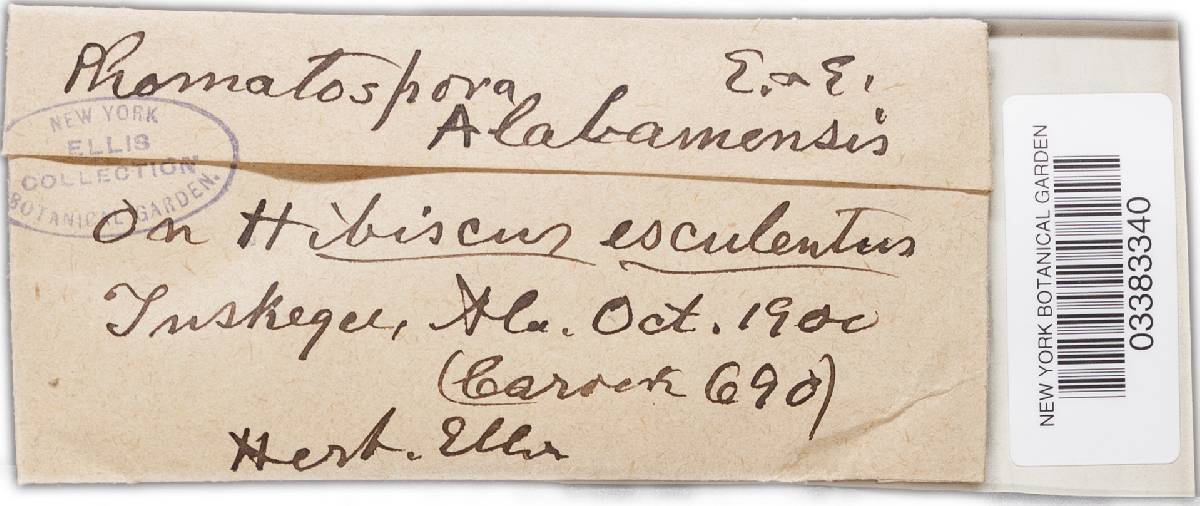 Phomatospora E. & E.
Alabamensis
NEW YORK
ELLIS
COLLECTION
BOTANICAL GARDEN.
On Hibiscus esculentus
Tuskegee, Ala. Oct. 1900
(Carver 690)
Herb. Ellis
NEW YORK BOTANICAL GARDEN
03383340